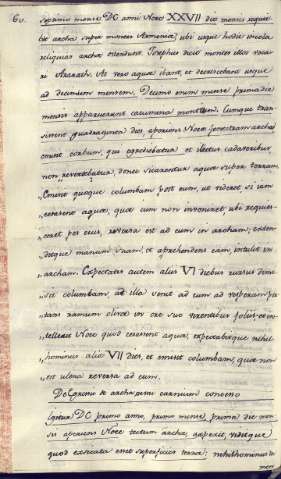 60.
septimo mense DC anni Noee XXVII die mensis requie-
vit archa super montes Armenia, ubi usque hodie incole
reliquias arche ostendunt. Josephus dicit montes illos voca-
ri Ararath. At vero aque ibant, et decrescebant usque
ad decimum mensem. Decimo enim mense prima die
mensis apparuerunt cacumina montium. Cumque tran-
sirent quadraginta dies aperiens Noee fenestram arche
emisit corbum, qui egrediebatur et
non revertebatur, donec siccarentur aque super terram.
Emisit quoque columbam post eum, ut videret si iam
cessarent aque, que cum non inveniret, ubi requies-
ceret pes eius, reversa est ad eum in archam; exten-
ditque manum suam, et aprehendens eam, intulit in
archam. Expectatis autem aliis VII diebus rursus dimi-
sit columbam, at illa venit ad eum ad vesperam por-
tans ramum olive in ore suo virentibus foliis: in-
tellexit Noee quod cessarent aque, expectabitque nihil-
hominus aliis VII dies, et emisit columbam, que non
est ultra reversa ad eum.
De egressu de archa
Igitur DC primo anno, primo mense, prima die men-
sis aperiens Noee tectum arche, aspexit, viditque
quod exsicata esset superficies terre; nihilhominus in
men